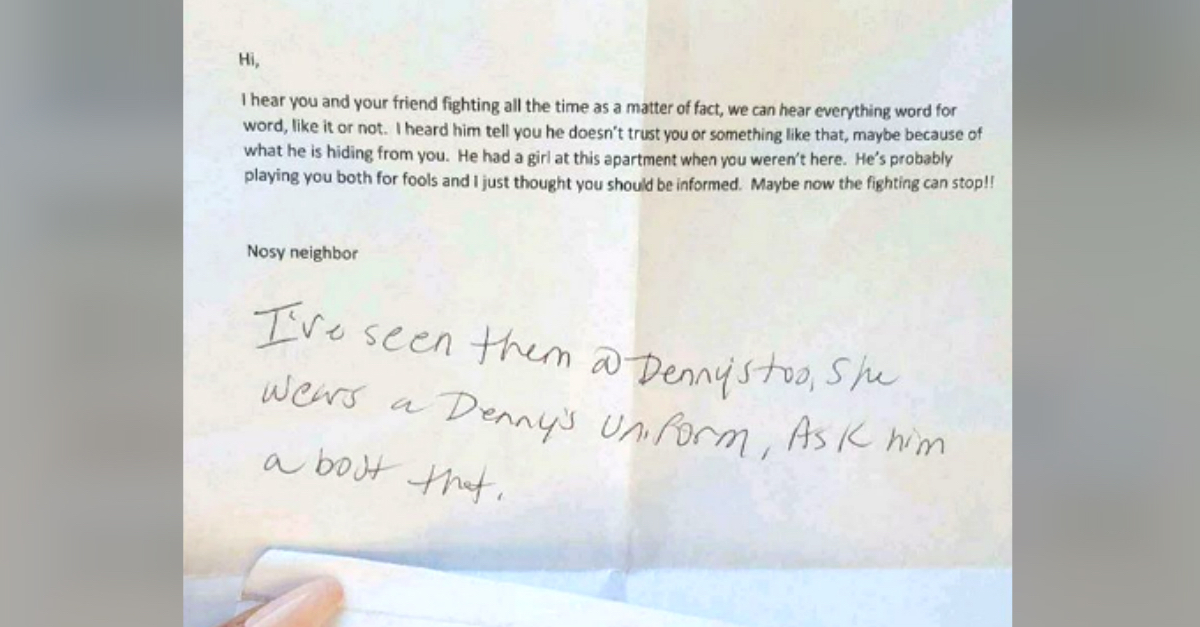 Hi,
I hear you and your friend fighting all the time as a matter of fact, we can hear everything word for
word, like it or not.  I heard him tell you he doesn't trust you or something like that, maybe because of
what he is hiding from you.  He had a girl at this apartment when you weren't here.  He's probably
playing you both for fools and I just thought you should be informed.  Maybe now the fighting can stop!!
Nosy neighbor
I've seen them @ Denny's too, She
wears a Denny's Uniform, Ask him
about that.